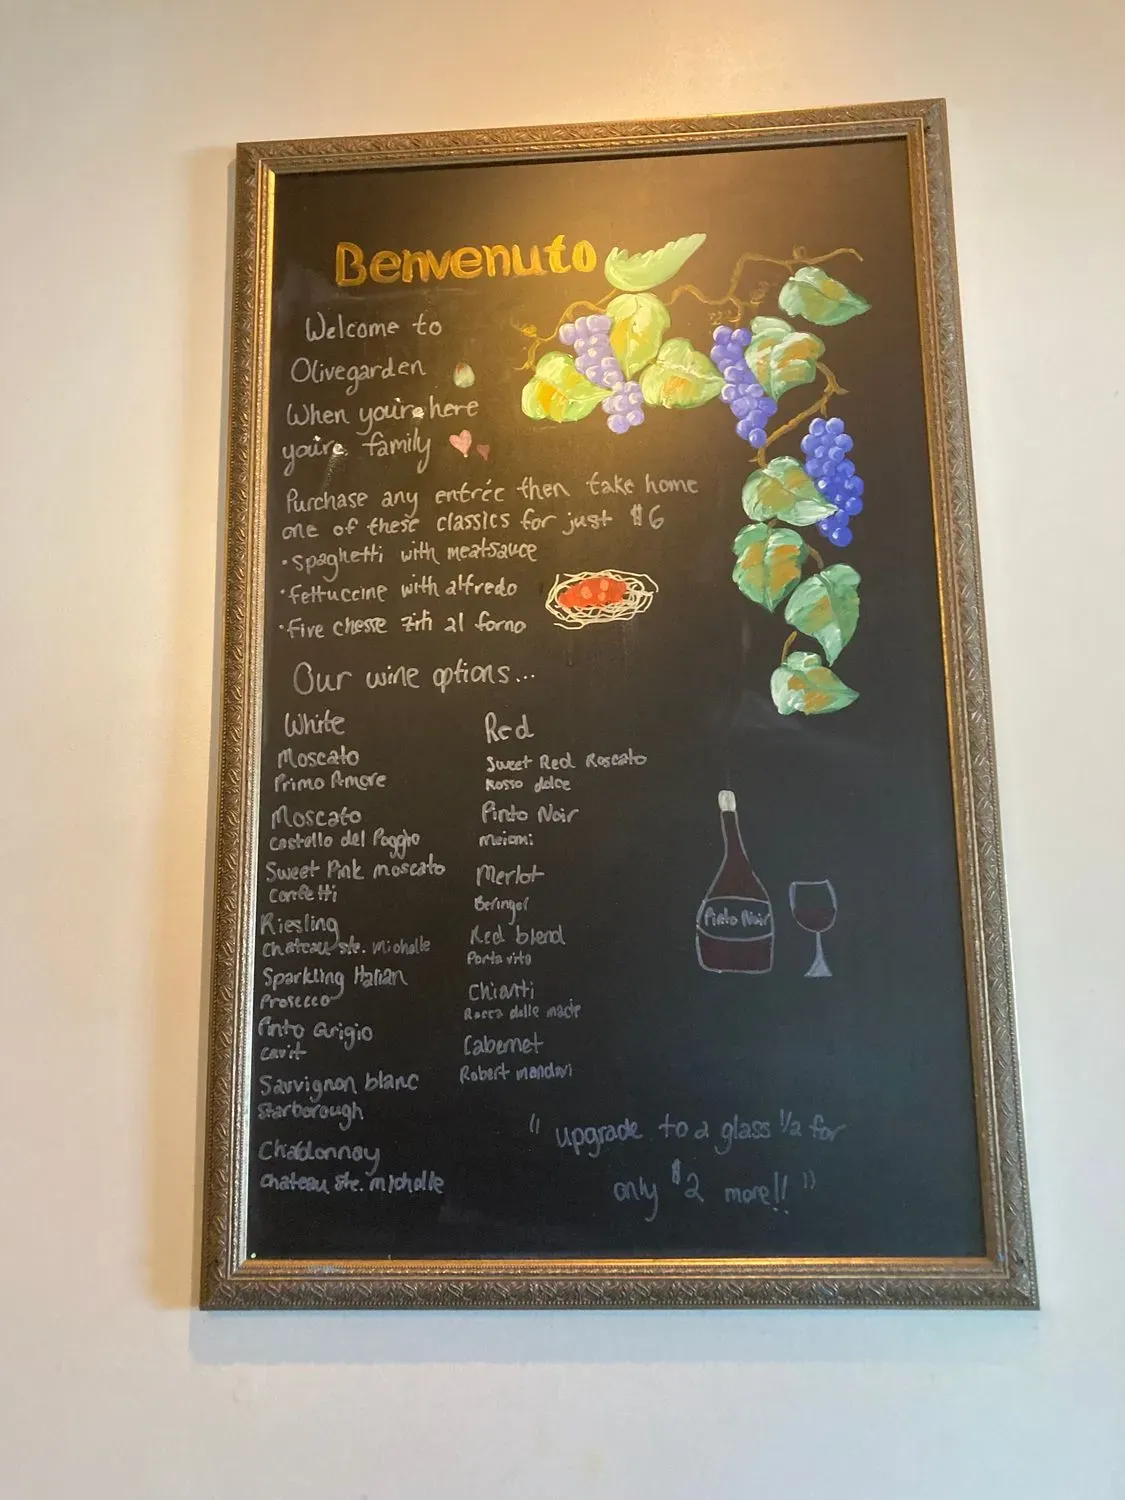 Benvenuto
Welcome to
Olivegarden
When you're here
you're family
Purchase any entrée then take home
one of these classics for just $6
• spaghetti with meatsauce
• fettuccine with alfredo
• Five chesse ziti al forno
Our wine options...
White
Moscato
Primo Amore
Moscato
Castello del Poggio
Sweet Pink moscato
Confetti
Riesling
Chateau ste. Michelle
Sparkling Italian
Prosecco
Pinto Grigio
Cavit
Sauvignon blanc
Starborough
Chablonnay
Chateau ste. michelle
Red
Sweet Red Roscato
Rosso dolce
Pinto Noir
Meiomi
Merlot
Beringer
Red blend
Porta vita
Chianti
Rocca delle macie
Cabernet
Robert mondavi
Pinto Noir
" upgrade to a glass 1/2 for
only $2 more!! "